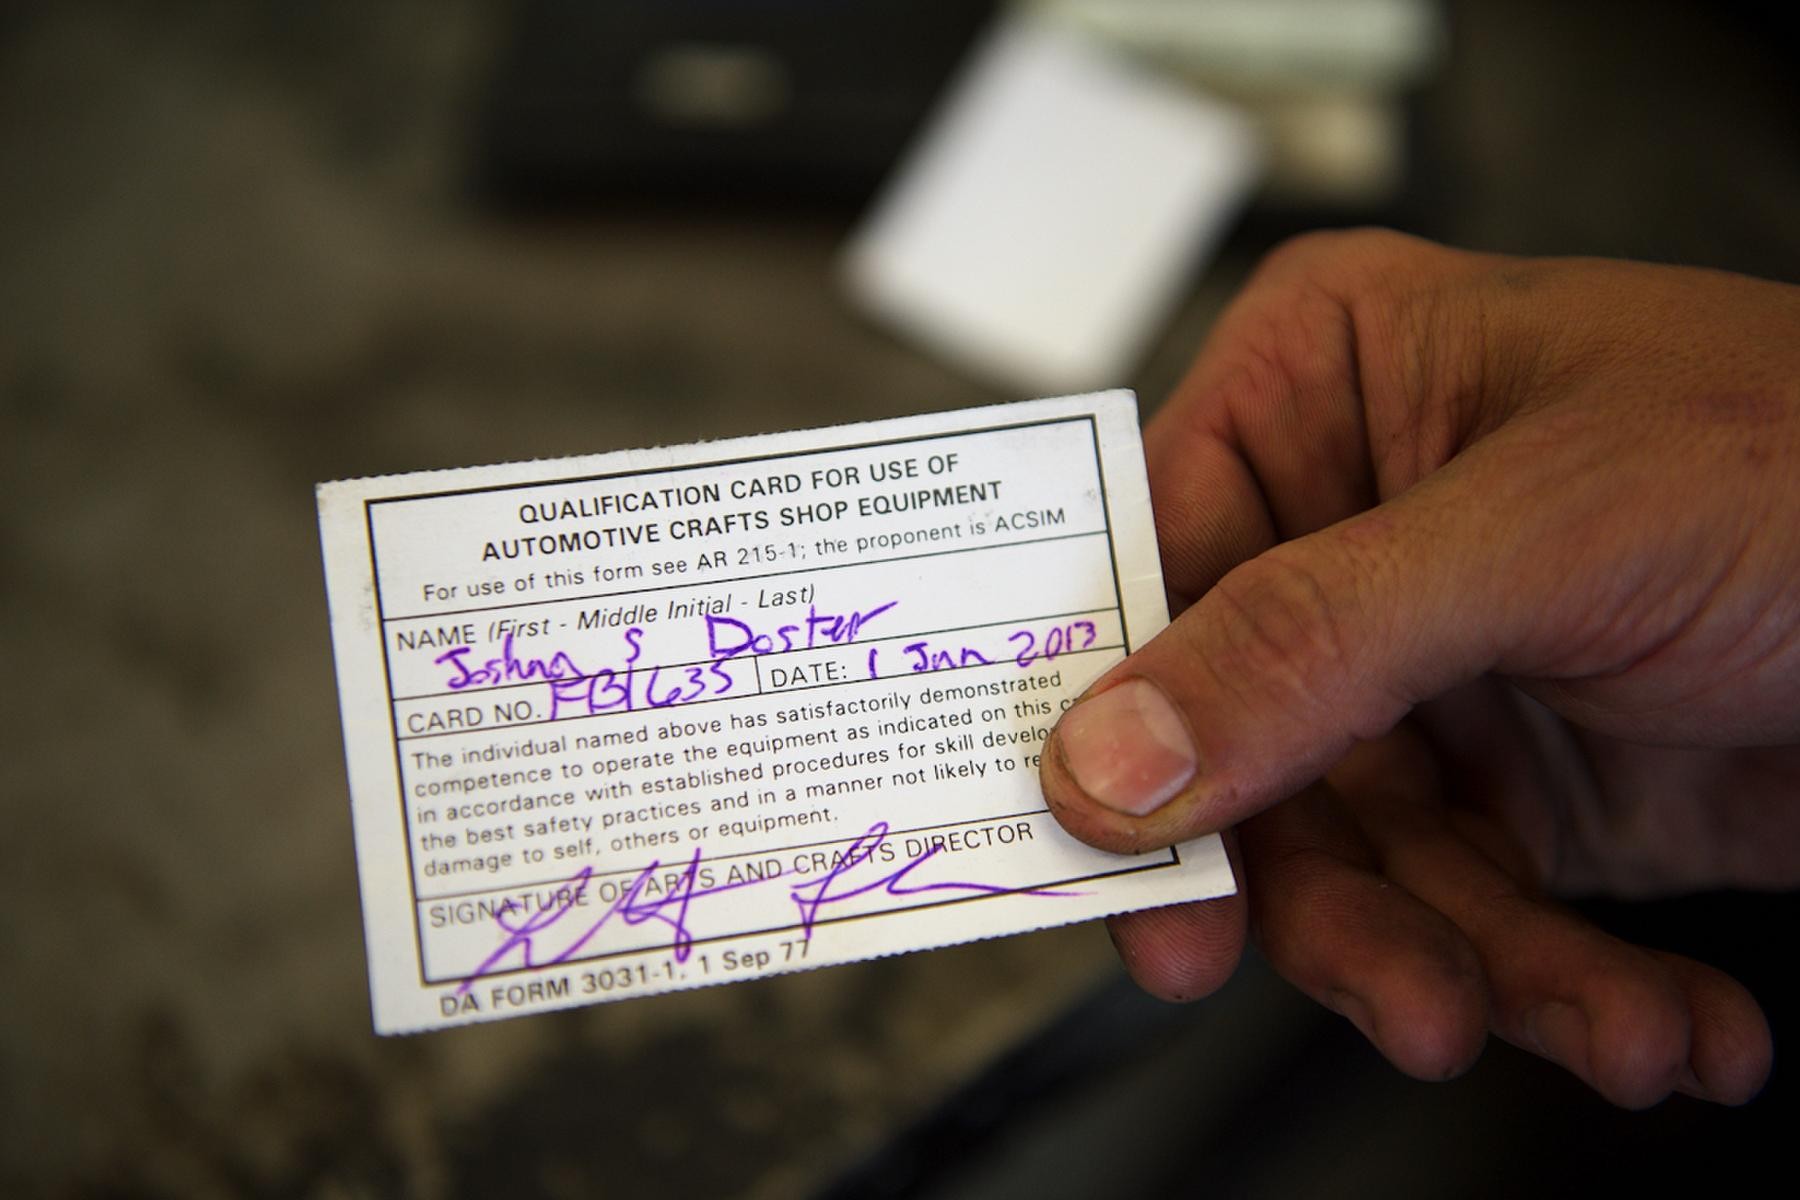 QUALIFICATION CARD FOR USE OF
AUTOMOTIVE CRAFTS SHOP EQUIPMENT
For use of this form see AR 215-1; the proponent is ACSIM
NAME (First - Middle Initial - Last)
Joshua S Doster
CARD NO. FB1635 DATE: 1 Jun 2013
The individual named above has satisfactorily demonstrated
competence to operate the equipment as indicated on this
in accordance with established procedures for skill
the best safety practices and in a manner not likely to
damage to self, others or equipment.
SIGNATURE OF ARTS AND CRAFTS DIRECTOR
DA FORM 3031-1, 1 Sep 77